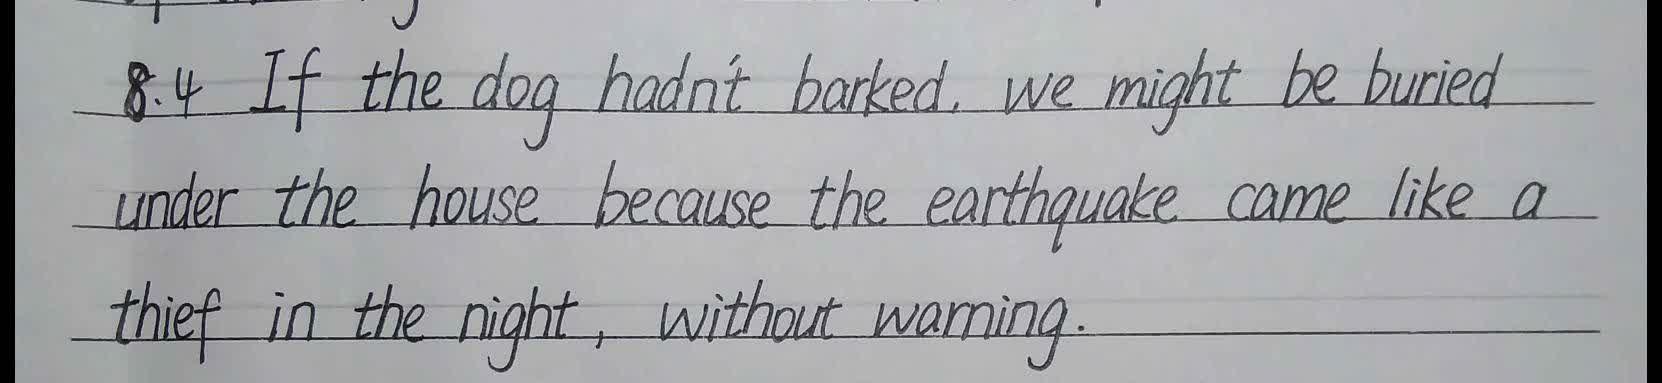 8.4 If the dog hadn't barked. we might be buried
under the house because the earthquake came like a
thief in the night, without warning.